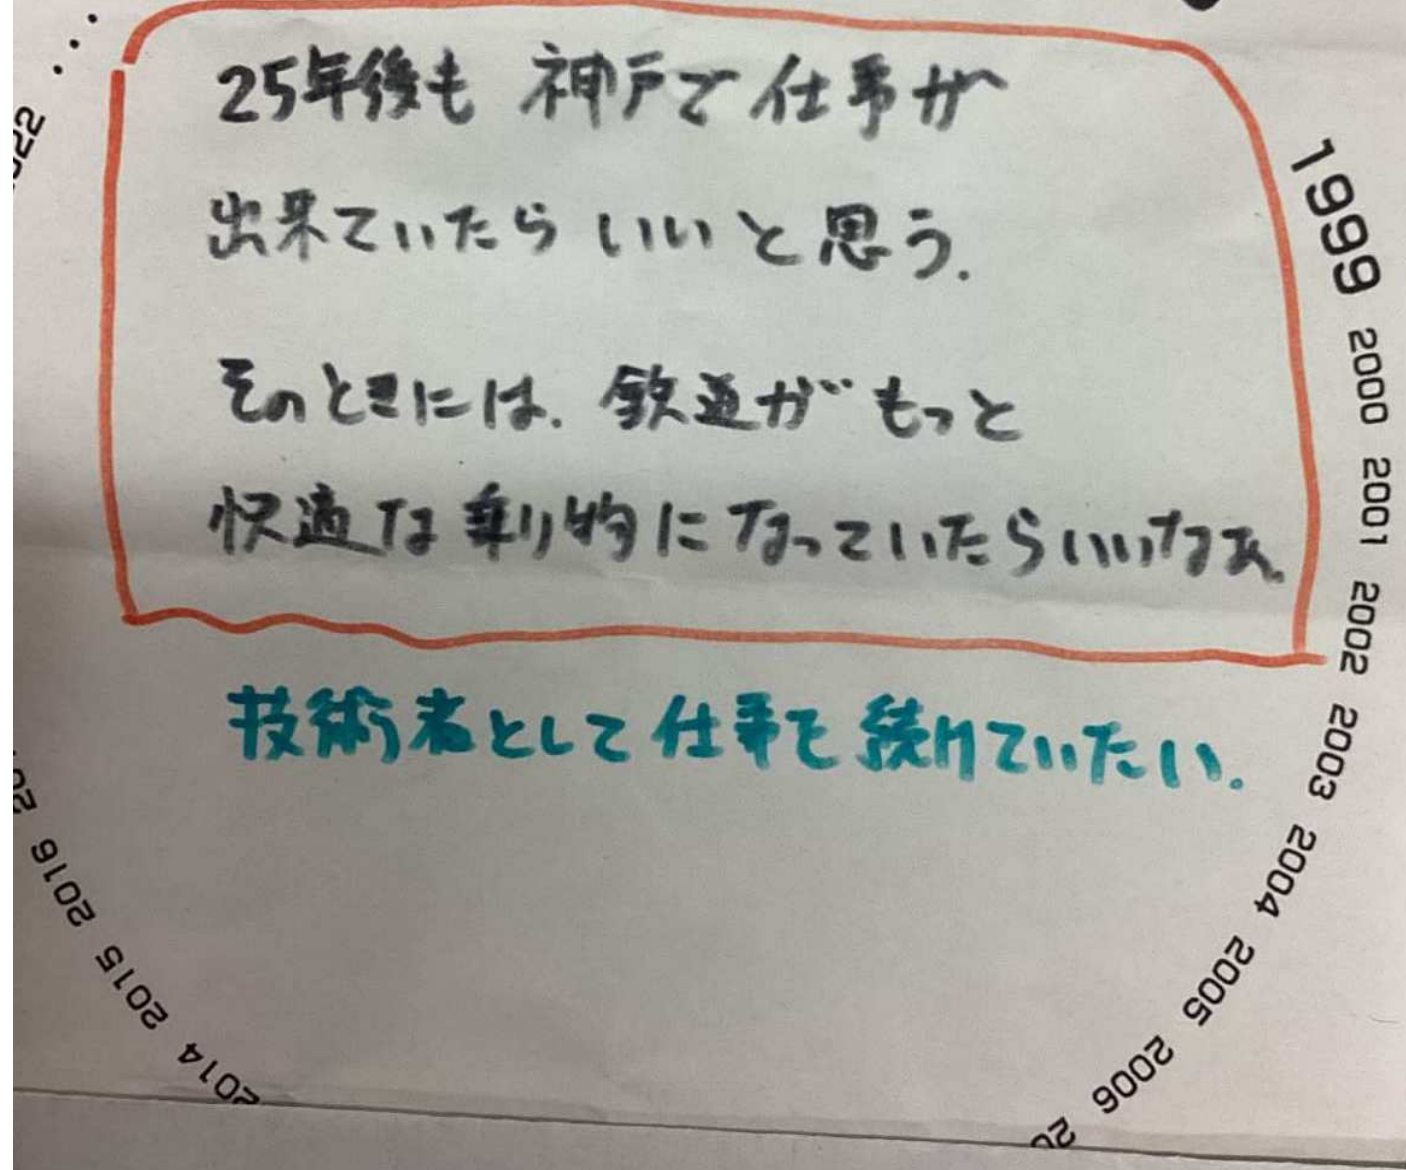 25年後も 神戸で 仕事が
出来ていたら いいと思う.
そのときには. 鉄道が もっと
快適な乗り物になっていたらいいなあ.
技術者として仕事を続けていたい.
1999 2000 2001 2002 2003 2004 2005 2006
2014 2015 2016